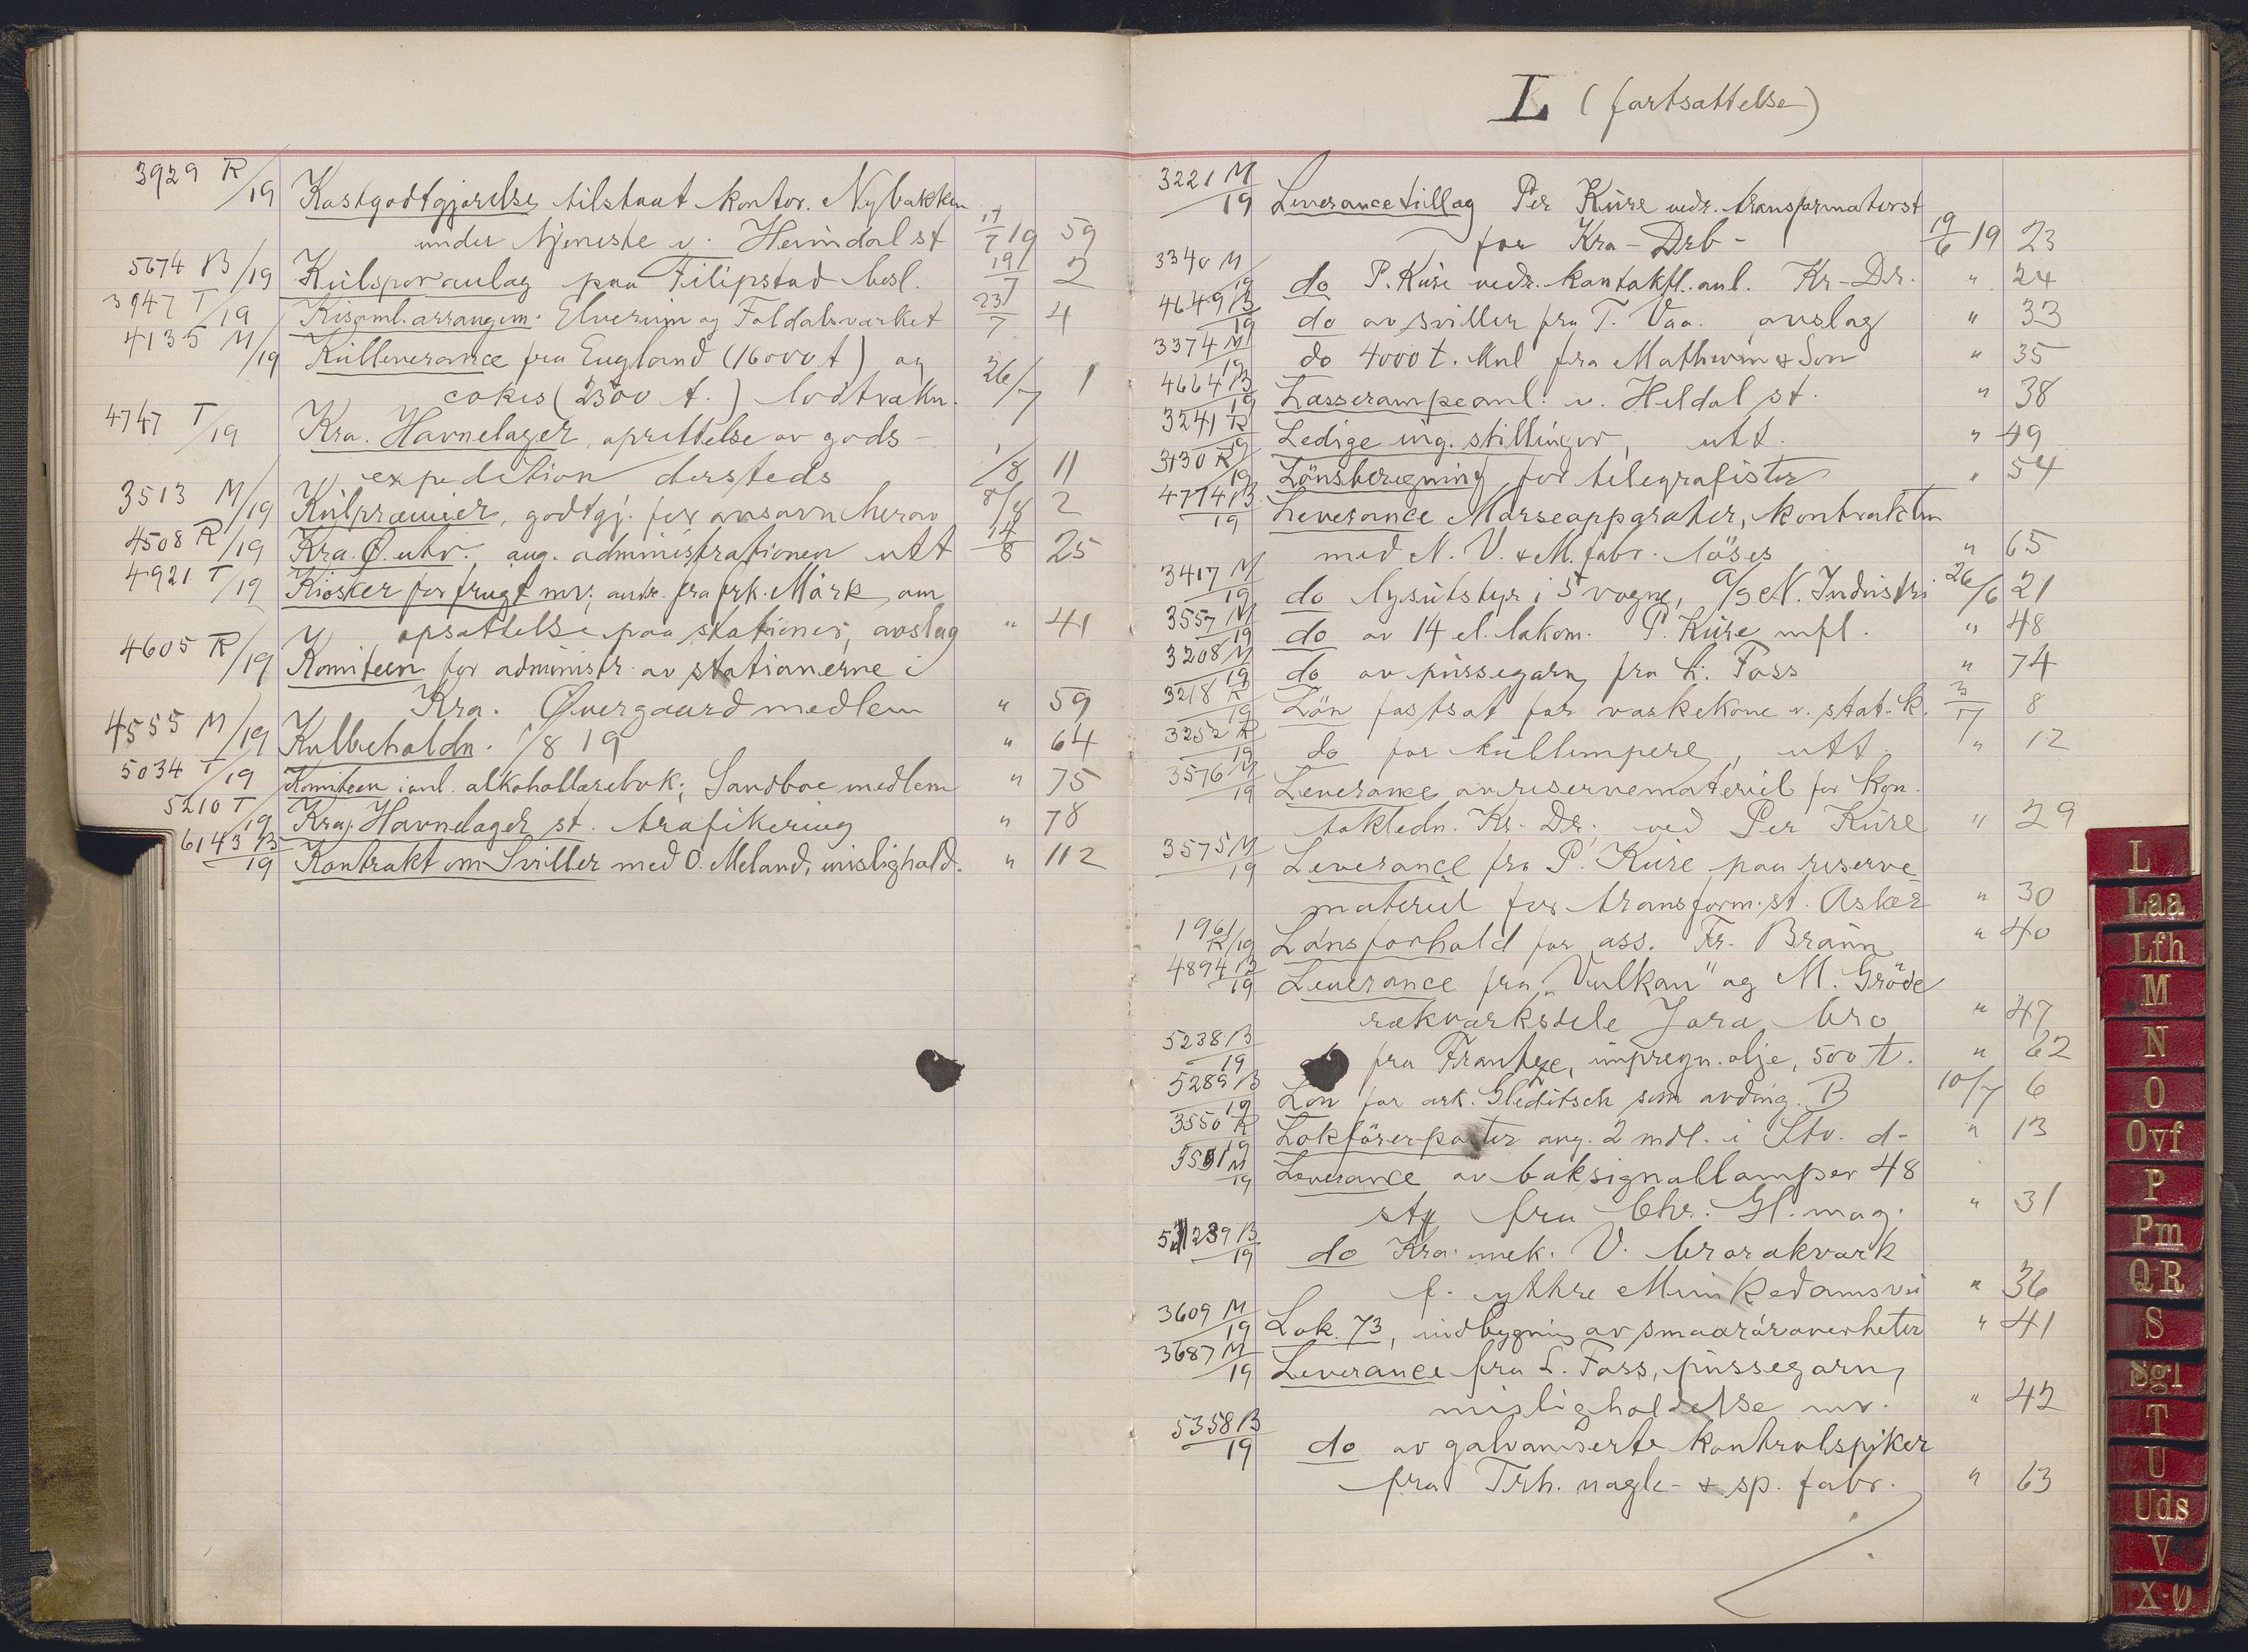 3929 R/19 Kostgodtgjørelse tilstaat kontor. Nybakken
under tjeneste v. Heimdal st 17/7 19 59
5674 B/19 Kulsporanlag paa Filipstad besl. 19/7 2
3947 T/19 Kisoml. arrangem. Elverum og Foldalsverket 23/7 4
4135 M/19 Kulleverance fra England (16000 t) og
cokes (2500 t.) lodtrækn. 26/7 1
4747 T/19 Kra. Havnelager, oprettelse av gods-
expedition dersteds 1/8 11
3513 M/19 Kulpræmier, godtgj. for ansavn herav 8/8 2
4508 R/19 Kra. Ø. utv. ang. administrationen utt 14/8 25
4921 T/19 Kiosker for frugt mv; andr. fra frk. Mörk, om
opsættelse paa stationer, avslag " 41
4605 R/19 Komiteen for administr. av stationerne i
Kra. Øvergaard medlem " 59
4555 M/19 Kulbeholdn. 1/8 19 " 64
5034 T/19 Komiteen i anl. alkohollærebok; Sandboe medlem " 75
5210 T/19 Kra. Havnelager st. trafikering " 78
6143 B/19 Kontrakt om Sviller med O. Meland, mislighold. " 112
L (fortsættelse)
3221 M/19 Leverancetillæg Per Kure vedr. transformatorst
for Kra-Drb- 19/6 19 23
3340 M/19 do P. Kure vedr. kontaktl. anl. Kr-Dr. " 24
4649 B/19 do av sviller fra T. Vaa. avslag " 33
3374 M/19 do 4000 t. kul fra Mathwin & Son " 35
4664 B/19 Læsserampeanl. v. Heldal st. " 38
3241 R/19 Ledige ing. stillinger, utt. " 49
3130 R/19 Lönsberegning for telegrafister " 54
4774 B/19 Leverance Morseapparater, kontrakten
med N. V. & M. fabr. löses " 65
3417 M/19 do lysutstyr i 5 vogne, A/S N. Industri 26/6 21
3557 M/19 do av 14 el. lokom. P. Kure mfl. " 48
3208 M/19 do av pussegarn fra L. Foss " 74
3218 R/19 Lön fastsat for vaskekone v. stat. K. 3/7 8
3252 R/19 do for kullempere, utt. " 12
3576 M/19 Leverance av reservemateriel for kon-
taktledn. Kr-Dr; ved Per Kure " 29
3575 M/19 Leverance fra P. Kure paa reserve
materiel for transform. st. Asker " 30
1961 R/19 Lönsforhold for ass. Fr. Braun " 40
4894 B/19 Leverance fra "Vulkan" og M. Gröde
rækværksdele Jora bro " 47
5238 B/19 fra Frantze, impregn. olje, 500 t. " 62
5289 B/19 Lön for ark. Gleditsch som avding. B 10/7 6
3550 R/19 Lokförerposter ang. 2 mdl. i Stv. d- " 13
3551 M/19 Leverance av baksignallamper 48
stk fra Chr. Gl. mag. " 31
5239 B/19 do Kra. mek. V. brorækværk
f. ythre Munkedamsvei " 36
3609 M/19 Lok. 73, indbygning av smaarörsoverheter " 41
3687 M/19 Leverance fra L. Foss, pussegarn,
misligholdelse mv. " 42
5358 B/19 do av galvaniserte kontrolspiker
fra Trh. nagle- & sp. fabr. " 63
L
Laa
Lfh
M
N
O
Ovf
P
Pm
QR
S
Sgl
T
U
Uds
V
X-Ø